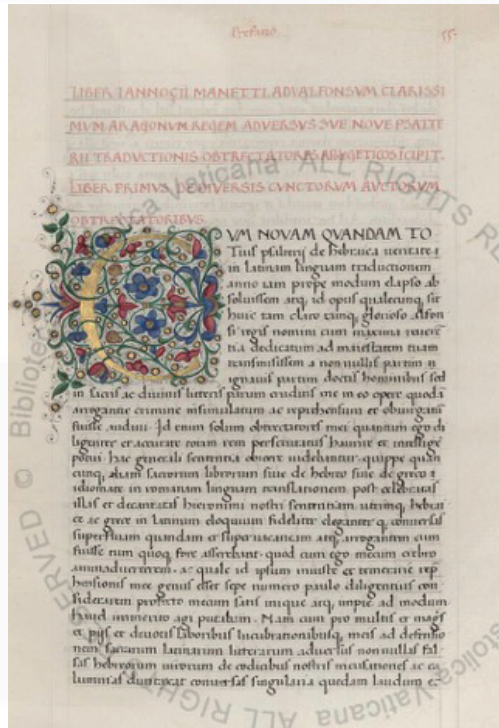 Prefatio 55.
LIBER IANNOÇII MANETTI AD ALFONSVM CLARISSI
MVM ARAGONVM REGEM ADVERSVS SVE NOVE PSALTE
RII TRADVCTIONIS OBTRECTATORES APOGETICOS ICIPIT.
LIBER PRIMVS DE DIVERSIS CVNCTORVM AVCTORVM
OBTRECTATORIBVS.
CVM NOVAM QVANDAM TO
Tius psalterij de hebraica ueritate
in latinam linguam traductionem
anno iam prope modum elapso ab
soluissem atq, id opus qualecunq, sit
huic tam claro tamq, glorioso alfon
si regis nomini cum maxima reueren
tia dedicatum ad maiestatem tuam
transmisissem a non nullis partim
ignauis partim doctis hominibus sed
in sacris ac diuinis litteris parum eruditis me in eo opere quodā
arrogantie crimine insimulatum ac reprehensum et obiurgatum
fuisse audiui. Id enim solum obtrectatores mei quantum ego di
ligenter et accurate totam rem perscrutatus haurire et intelligere
potui hac generali sententia obicere uidebantur quippe quan
cunq, aliam sacrorum librorum siue de hebreo siue de greco
idiomate in romanam linguam translationem post celebratas
illas et decantatas hieronimi nostri sententiam utrinq, hebrai
ce ac grece in latinum eloquium fideliter eleganter q, conuersis
superfluam quandam et superuacaneam atq, arrogantem cum
fuisse tum quoq, fore asserebant. quod cum ego mecum crebro
animaduerterem. ac quale id ipsum iniuste et temerarie repre
hensionis mee genus esset sepe numero paulo diligentius con
siderarem profecto mecum satis inique atq, impie ad modum
haud immerito agi putabam. Nam cum pro multis et magnis
et pijs et deuotis laboribus lucubrationibusq, meis ad defensio
nem sacrarum latinarum litterarum aduersus non nullas fal
sas hebreorum uirorum de codicibus nostris incusationes ac ca
lumnias duntaxat conuersas singularia quedam laudum
© Biblioteca Apostolica Vaticana ALL RIGHTS RESERVED